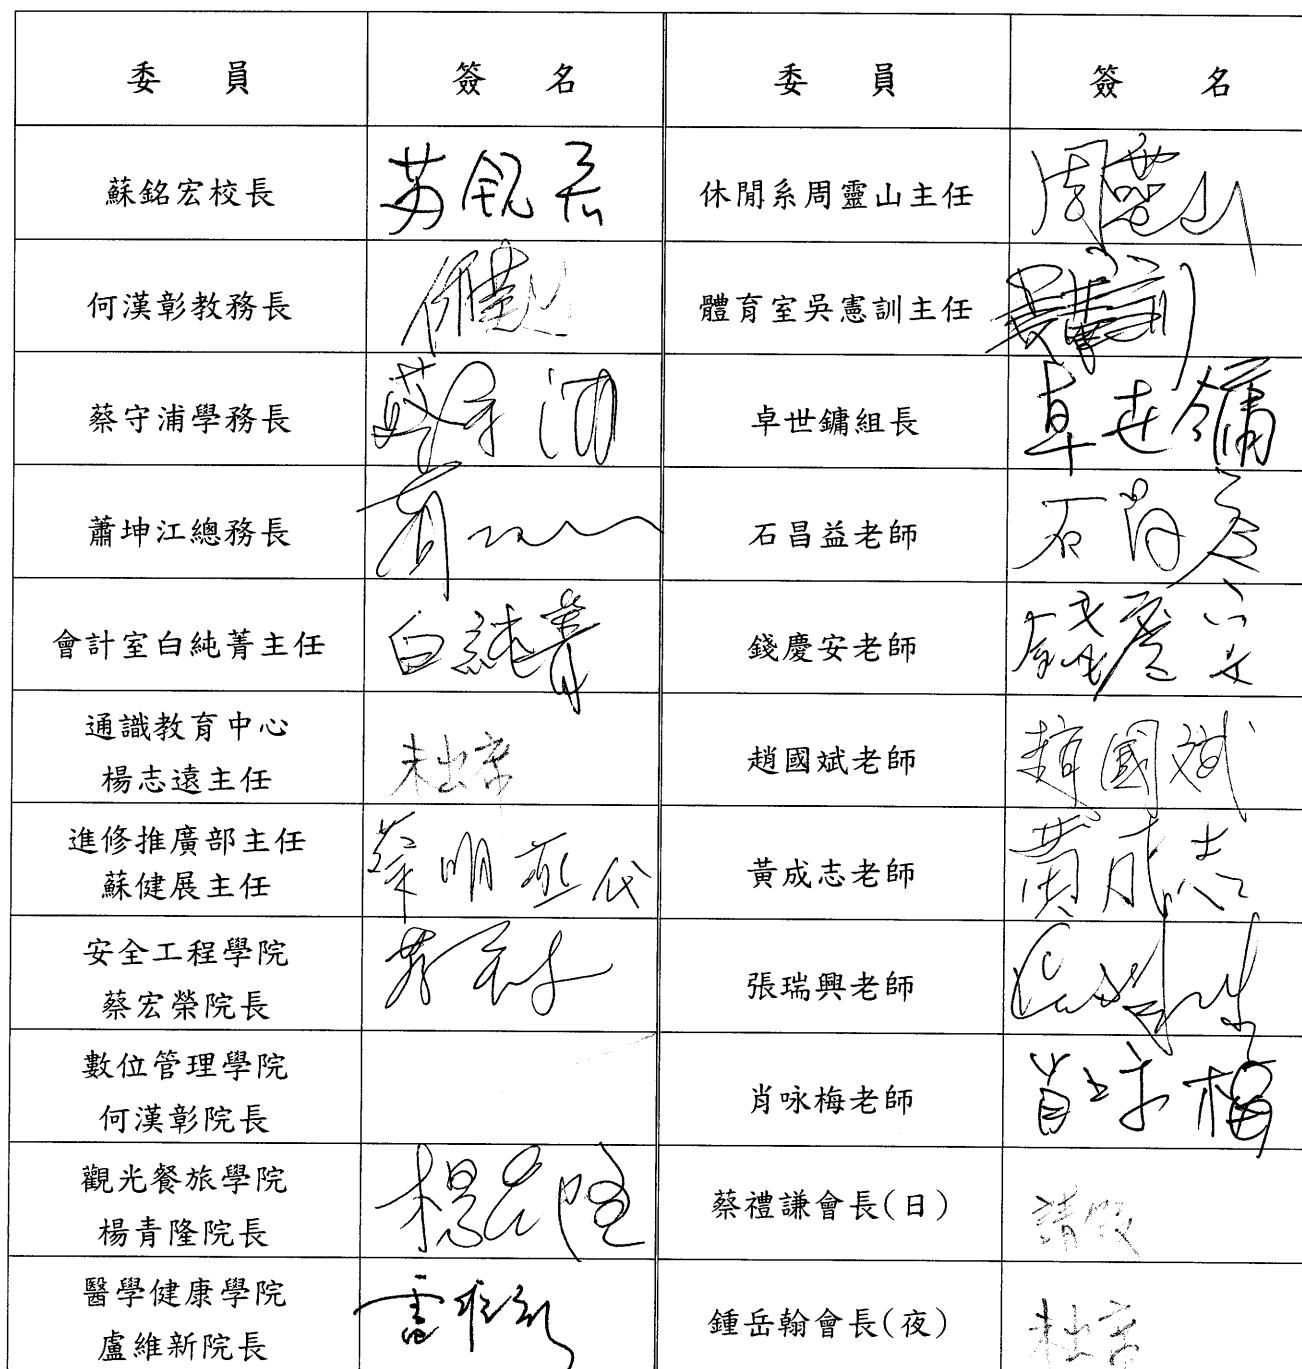 委員 簽名 委員 簽名
蘇銘宏校長 休閒系周靈山主任 周靈山
何漢彰教務長 體育室吳憲訓主任
蔡守浦學務長 卓世鏞組長 卓世鏞
蕭坤江總務長 石昌益老師 石昌益
會計室白純菁主任 白純菁 錢慶安老師 錢慶安
通識教育中心
楊志遠主任 未出席 趙國斌老師 趙國斌
進修推廣部主任
蘇健展主任 黃成志老師 黃成志
安全工程學院
蔡宏榮院長 張瑞興老師
數位管理學院
何漢彰院長 肖咏梅老師
觀光餐旅學院
楊青隆院長 蔡禮謙會長(日) 請假
醫學健康學院
盧維新院長 鍾岳翰會長(夜) 未出席